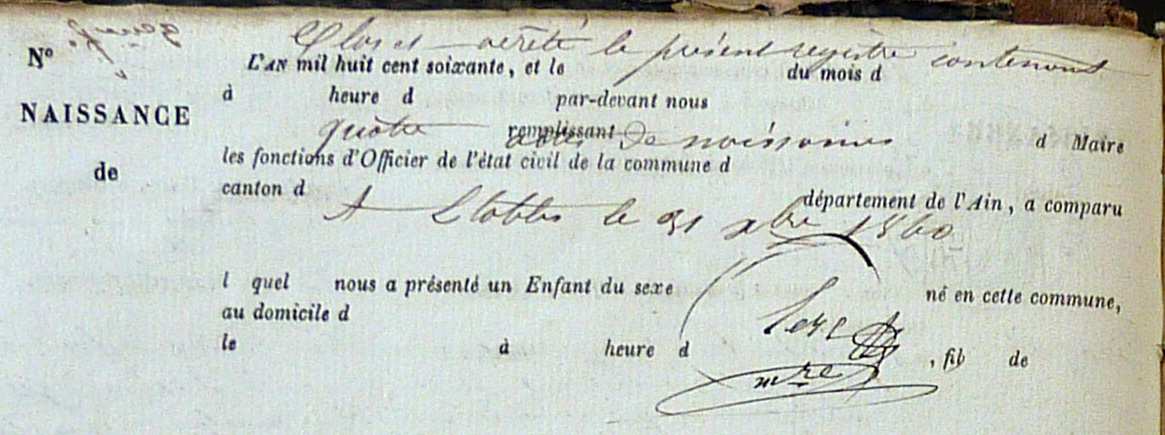 Clos et arrêté le présent registre contenant
N° L'AN mil huit cent soixante, et le du mois d
à heure d par-devant nous
NAISSANCE
quatre actes de naissances
remplissant d Maire
les fonctions d'Officier de l'état civil de la commune d
de
canton d département de l'Ain, a comparu
A Etables le 31 xbre 1860
l quel nous a présenté un Enfant du sexe né en cette commune,
au domicile d
le à heure d , fils de
mre